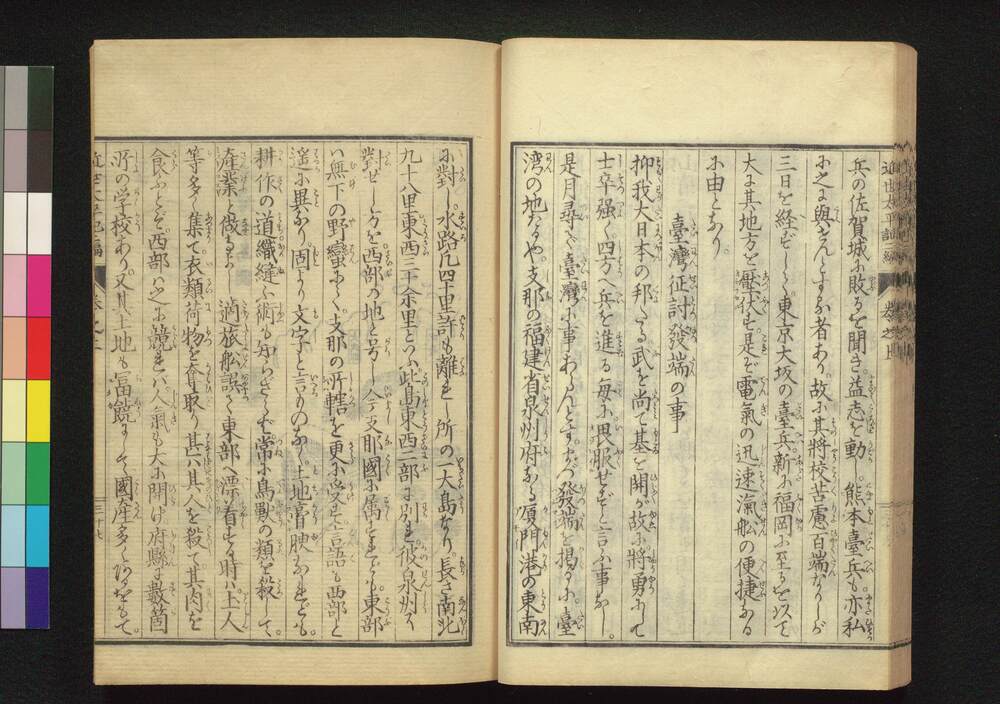 近世太平記 卷之上
兵の佐賀城に敗るを聞き益志を動し熊本臺兵も亦私
に之に與さんとする者あり故に其將校苦慮百端なりしが
三日を経ずして東京大坂の臺兵新に福岡に至るを以て
大に其地方を壓伏す是を電氣の迅速滊舩の便捷なる
に由となり
臺灣征討發端の事
抑我大日本の邦たる武を尚を基を開が故に將勇にして
士卒强く四方へ兵を進る毎に畏服せずと言ふ事なし
是月尋で臺灣に事あらんとすまづ發端を掲るに臺
湾の地たるや支那の福建省泉州府なる厦門港の東南
に對し水路凡四十里許も離れし所の一大島なり長さ南北
九十八里東西三十余里といふ此島東西二部に別れ彼泉州に
對せし方を西部の地と号し今支那國に属すれども東部
は無下の野蠻にて支那の所轄を更に受ず言語も西部と
遥に異なり固より文字と言ものなく土地膏腴なれども
耕作の道織縫ふ術も知らざれば常に鳥獸の類を殺して
産業と做るよし適旅舩誤て東部へ漂着する時ハ土人
等多く集て衣類荷物を奪取り其上其人を殺て其肉を
食ふとぞ西部ハ之に競れバ人氣も大に開け府縣に數箇
所の学校あり又其土地も冨饒にして國産多くあるをもて